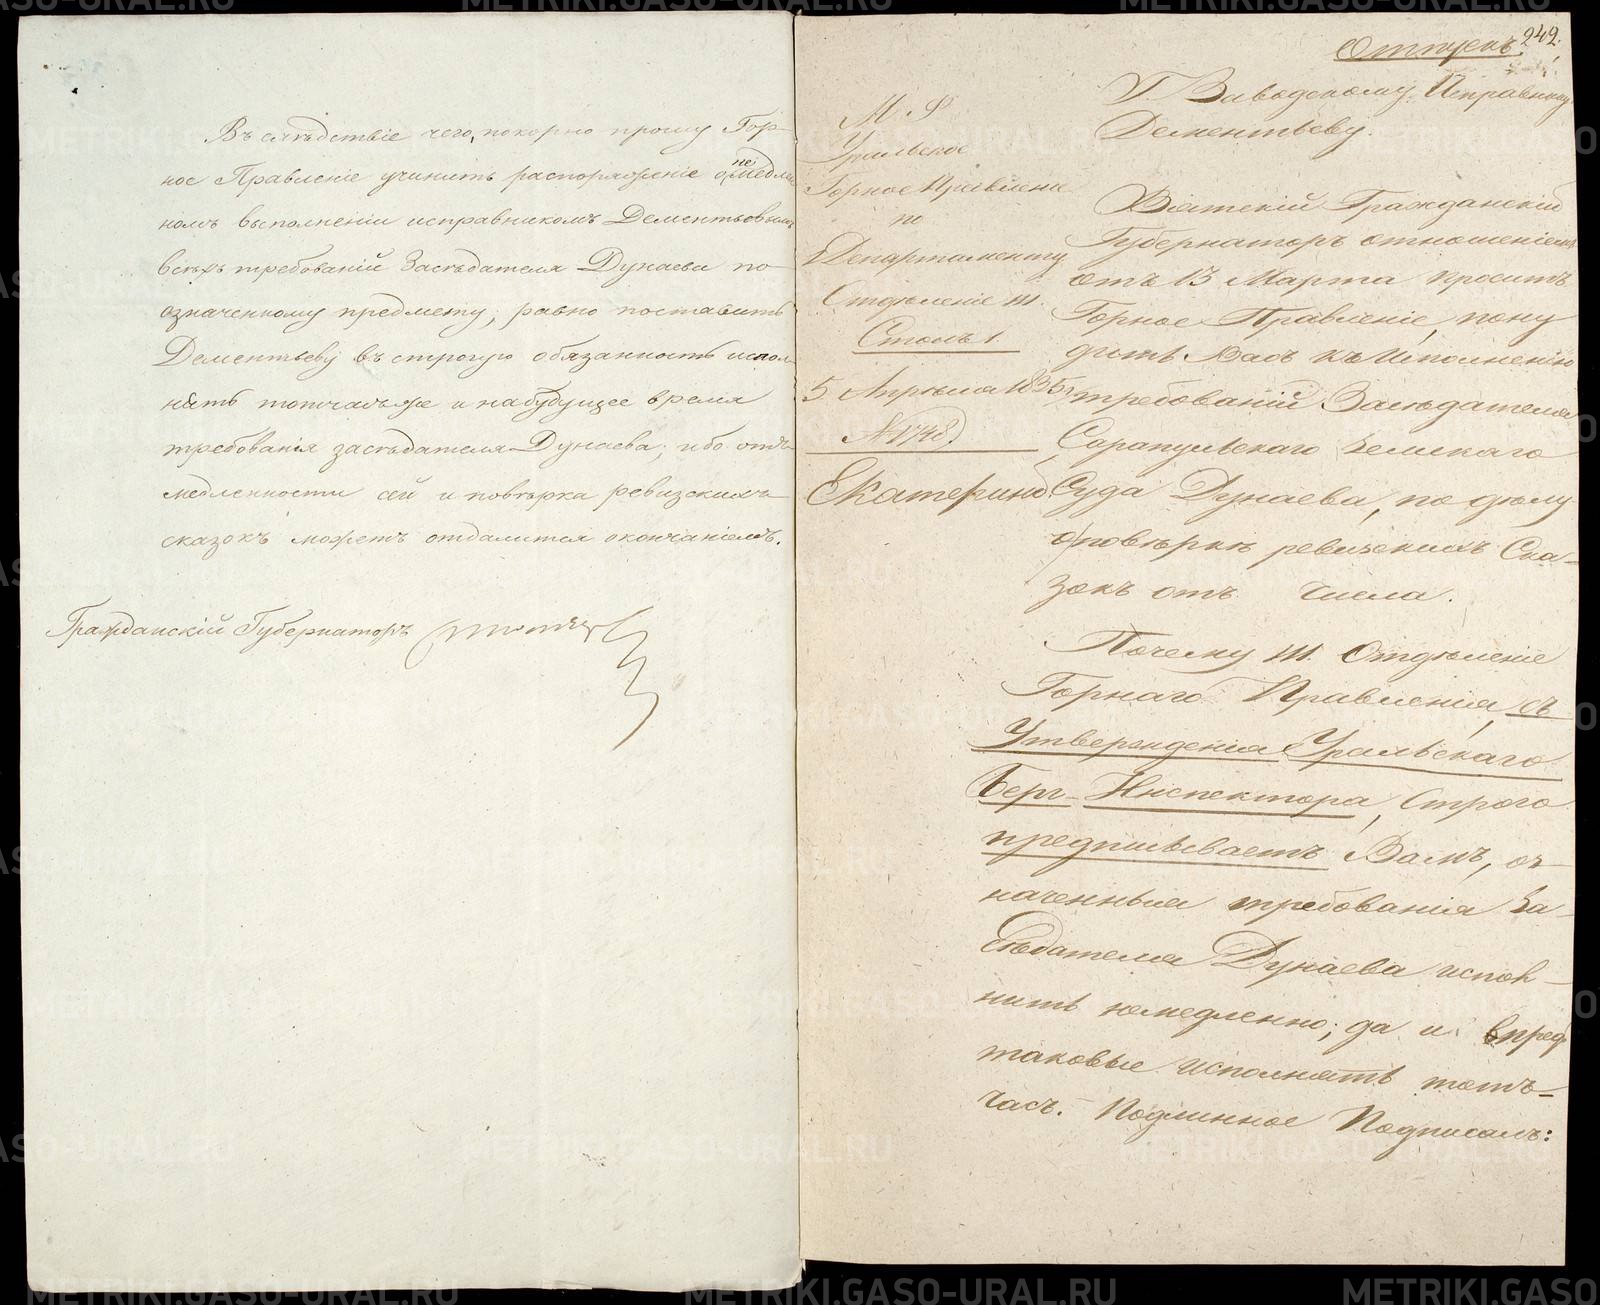 Въ слѣдствіе чего, покорно прошу Гор-
ное Правленіе учинить распоряженіе о немедлен
номъ выполненіи исправникомъ Дементьевымъ
всѣхъ требованій Засѣдателя Дунаева по
означенному предмету, равно поставить
Дементьеву въ строгую обязанность испол-
нять тотчасъ же и на будущее время
требованія засѣдателя Дунаева; ибо отъ
медленности сей и повѣрка ревизскихъ
сказокъ можетъ отдалится окончаніемъ.
Гражданскій Губернаторъ
242.
Отпускъ.
М. Ф.
Уральское
Горное Правленіе
по
Департаменту
Отдѣленіе III.
Столъ 1.
5 Апрѣля 1835 г.
№ 1748.
Екатеринб
Г. Заводскому Исправнику
Дементьеву.
Вятскій Гражданскій
Губернаторъ отношеніемъ
отъ 13 Марта проситъ
Горное Правленіе, пону
дить Васъ къ исполненію
требованій Засѣдателя
Сарапульскаго Земскаго
Суда Дунаева, по дѣлу
о повѣркѣ ревизскихъ Ска-
зокъ отъ числа.
Почему III. Отдѣленіе
Горнаго Правленія, съ
Утвержденія Уральскаго
Бергъ-Инспектора, строго
предписываетъ Вамъ, оз-
наченныя требованія За-
сѣдателя Дунаева испол-
нить немедленно; да и впред
таковые исполнять тотъ-
часъ. Подлинное Подписалъ: